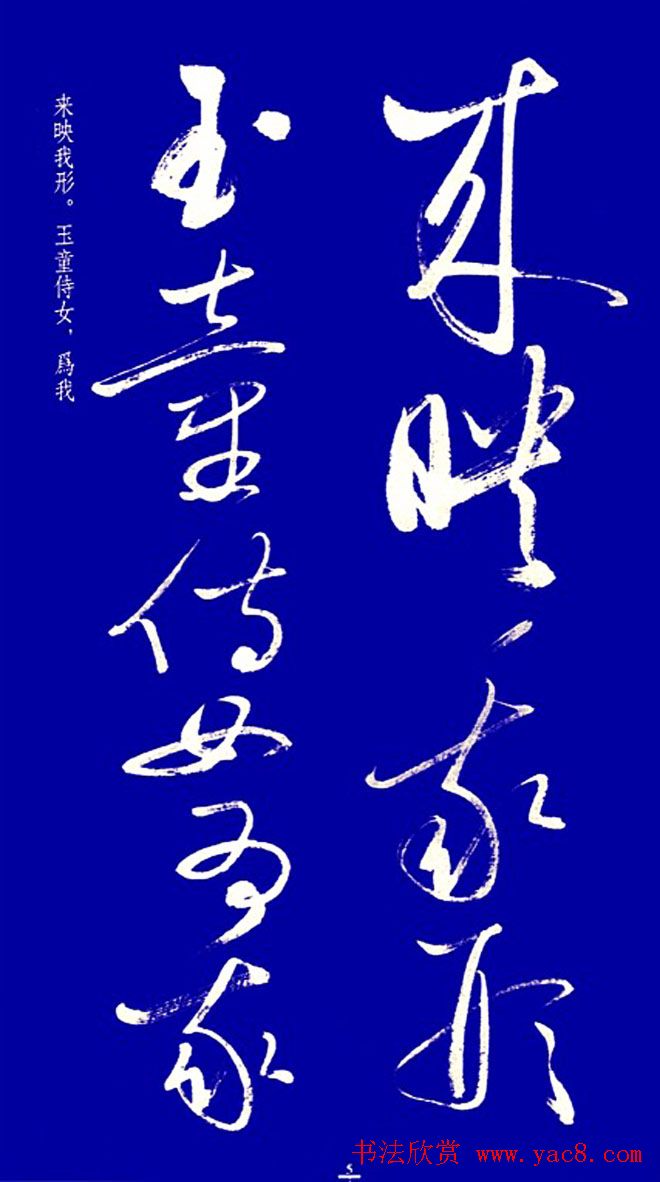 来映我形
玉童侍女为我
来映我形。玉童侍女，爲我
5
书法欣赏 www.yac8.com